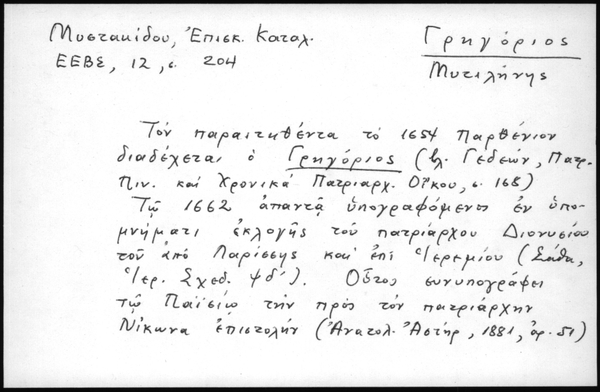 Μυστακίδου, Ἐπισκ. Καταλ.
ΕΕΒΣ, 12, σ. 204
Γρηγόριος
Μυτιλήνης
Τόν παραιτηθέντα τό 1654 Παρθένιον
διαδέχεται ὁ Γρηγόριος (βλ. Γεδεών, Πατρ.
Πιν. καί Χρονικά Πατριαρχ. Οἴκου, σ. 168)
Τῷ 1662 ἀπαντᾷ ὑπογραφόμενος ἐν ὑπο-
μνήματι ἐκλογῆς τοῦ πατριάρχου Διονυσίου
τοῦ ἀπό Λαρίσσης καί ἐπί Ἱερεμίου (Σάθα,
Ἱερ. Σχεδ. ψδ΄). Οὗτος συνυπογράφει
τῷ Παϊσίῳ τήν πρός τόν πατριάρχην
Νίκωνα ἐπιστολήν (Ἀνατολ. Ἀστήρ, 1881, ἀρ. 51)